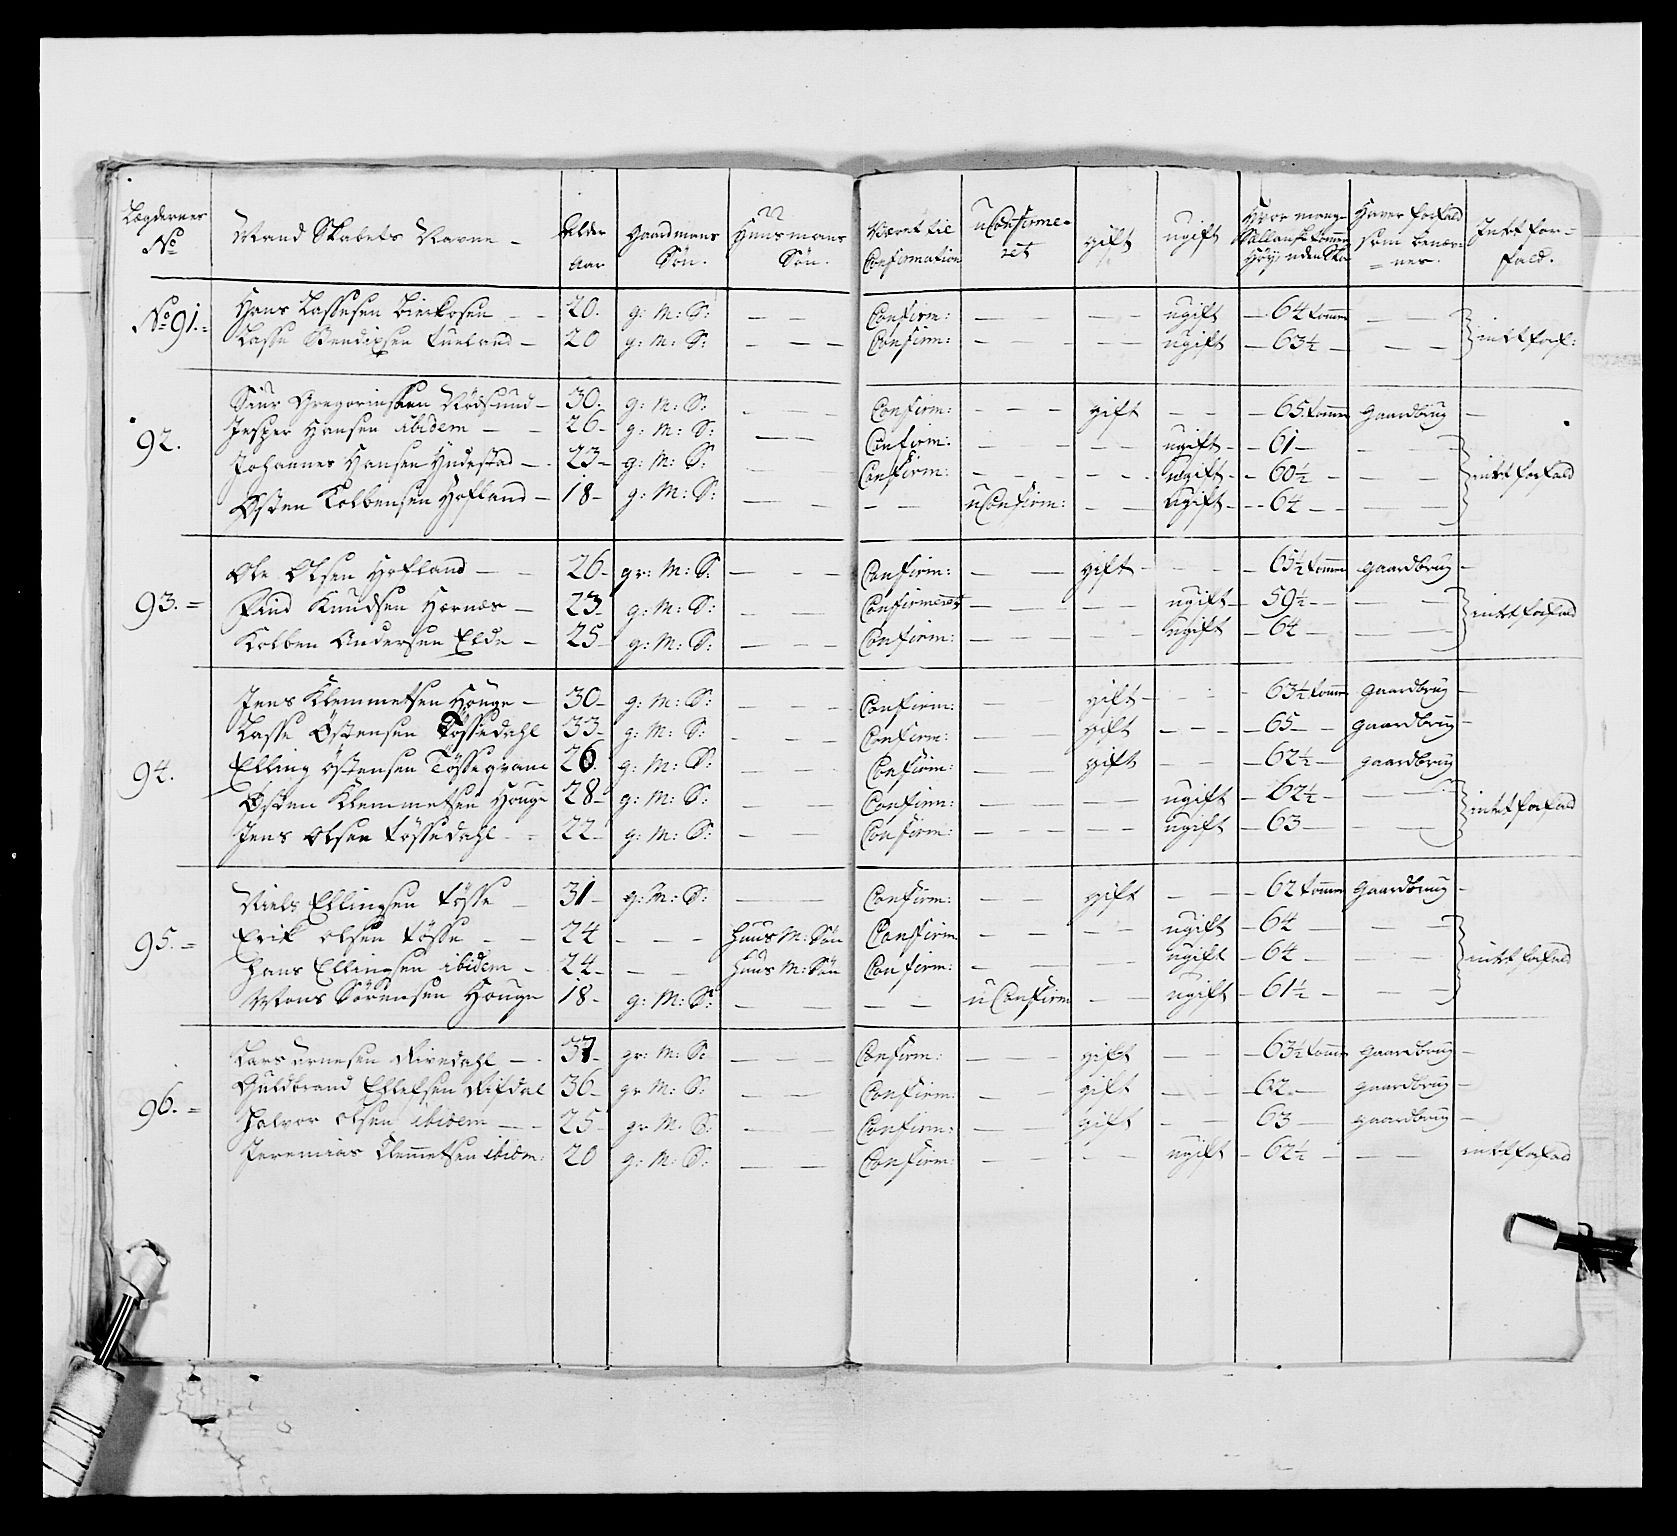 Lægdernes No | Mand Skabets Navne – | Alder Aar | Gaardmans Søn. | Huusmans Søn. | Været til Confirmation | u Confirmeret | gift | ugift | Hvor mange Sællandske tommer Høy uden Skoe | Haver forfald som benævnes. | Intet forfald.
No 91. = | Hans Lassesen Birkosen – – | 20. | g: M: S: | – – – | Confirm: | – – | – – | ugift | – 64 tommer | – – – | } intet forf:
Lasse Bendixsen Tueland – | 20 | g: M: S: | – – – | Confirm: | – – – | – – | ugift | – 63½ – | – – –
92. | Siur Gregoriussen Rödsund – | 30. | g: M: S: | – – – | Confirm: | – – – | gift | – – | – 65. tommer | Gaardbrug | –
Jesper Hansen ibidem – – | 26 – | g: M: S: | – – – | Confirm: | – – | – – | ugift – | – 61 – | – – | } intet forfald
Johannes Hansen Yndestad – | 23 – | g: M: S: | – | Confirm: | – – | – – | ugift – | – 60½ – | – –
Østen Kolbensen Hofland – | 18 – | g: M: S: | – – | – – | u Confirm: | – – | ugift – | – 64 – – | – –
93. = | Ole Olsen Hofland – – | 26 – | gr: M: S: | – – – | Confirm: | – – | gift | – – – | – 65½ tommer | gaardbrug | –
Find Knudsen Hornæs – | 23 | g: M: S: | – – – | Confirmeret | – – – | – – | ugift – | 59½ – | – – | } intet forfald
Kolben Andersen Elde – | 25 – | g: M: S: | – – – | Confirm: | – – – | – – | ugift | – 64 – | – –
94. | Jens Klemmetsen Houge – | 30 – | g: M: S: | – – – | Confirm: | – | gift – | – – | – 63½ tommer | Gaardbrug | –
Lasse Östensen Tössedahl | 33 – | g: M: S: | – – – | Confirm: | – – | gift | – – – | – 65 – – | Gaardbrug | –
Elling Östensen Tössegrane | 26. | g: M: S: | – – – | Confirm: | – – | gift | – – | – 62½ – | gaardbrug
Østen Klemmetsen Houge | 28 – | g: M: S: | – – – | Confirm: | – – | – – | ugift | – 62½ – | – – | } intet forfald
Jens Olsen Tössedahl – – | 22 – | g: M: S: | – – – | Confirm: | – – – | – – | ugift | – 63 – | – –
95. = | Niels Ellingsen Tösse – | 31 – | g: M: S: | – – | Confirm: | – – | gift | – – | – 62 tommer | Gaardbrug | –
Erik Olsen Tösse – – | 24 | – – – | Huus M: Søn | Confirm | – – – | – – | ugift | – 64 – | – – | } intet forfald
Hans Ellingsen ibidem – | 24 – | – – | huus M: Søn | Confirm: | – – | – – | ugift | – 64 – | – –
Mons Sörensen Houge | 18 – | g: M: S: | – – | – – | u Confirm | – – | ugift | – 61½ – | – –
96. = | Lars Arnesen Rivedahl – – | 37 – | gr: M: S: | – – – | Confirm: | – – – | gift | – – | – 63½ tommer | gaardbrug | –
Guldbrand Ellefsen Rifdal | 36 – | gr M: S: | – – – | Confirm: | – – | gift | – – | – 62 – – | gaardbrug | –
Halvor Olsen ibidem – – | 25 – | gr M: S: | – – – | Confirm: | – – | gift | – – | 63 – | gaardbrug | –
Jeremias Clemmetsen ibidem: | 20 | g: M: S: | – – – | Confirm: | – – – | – – | ugift | – 62½ – | – – | intet forfald